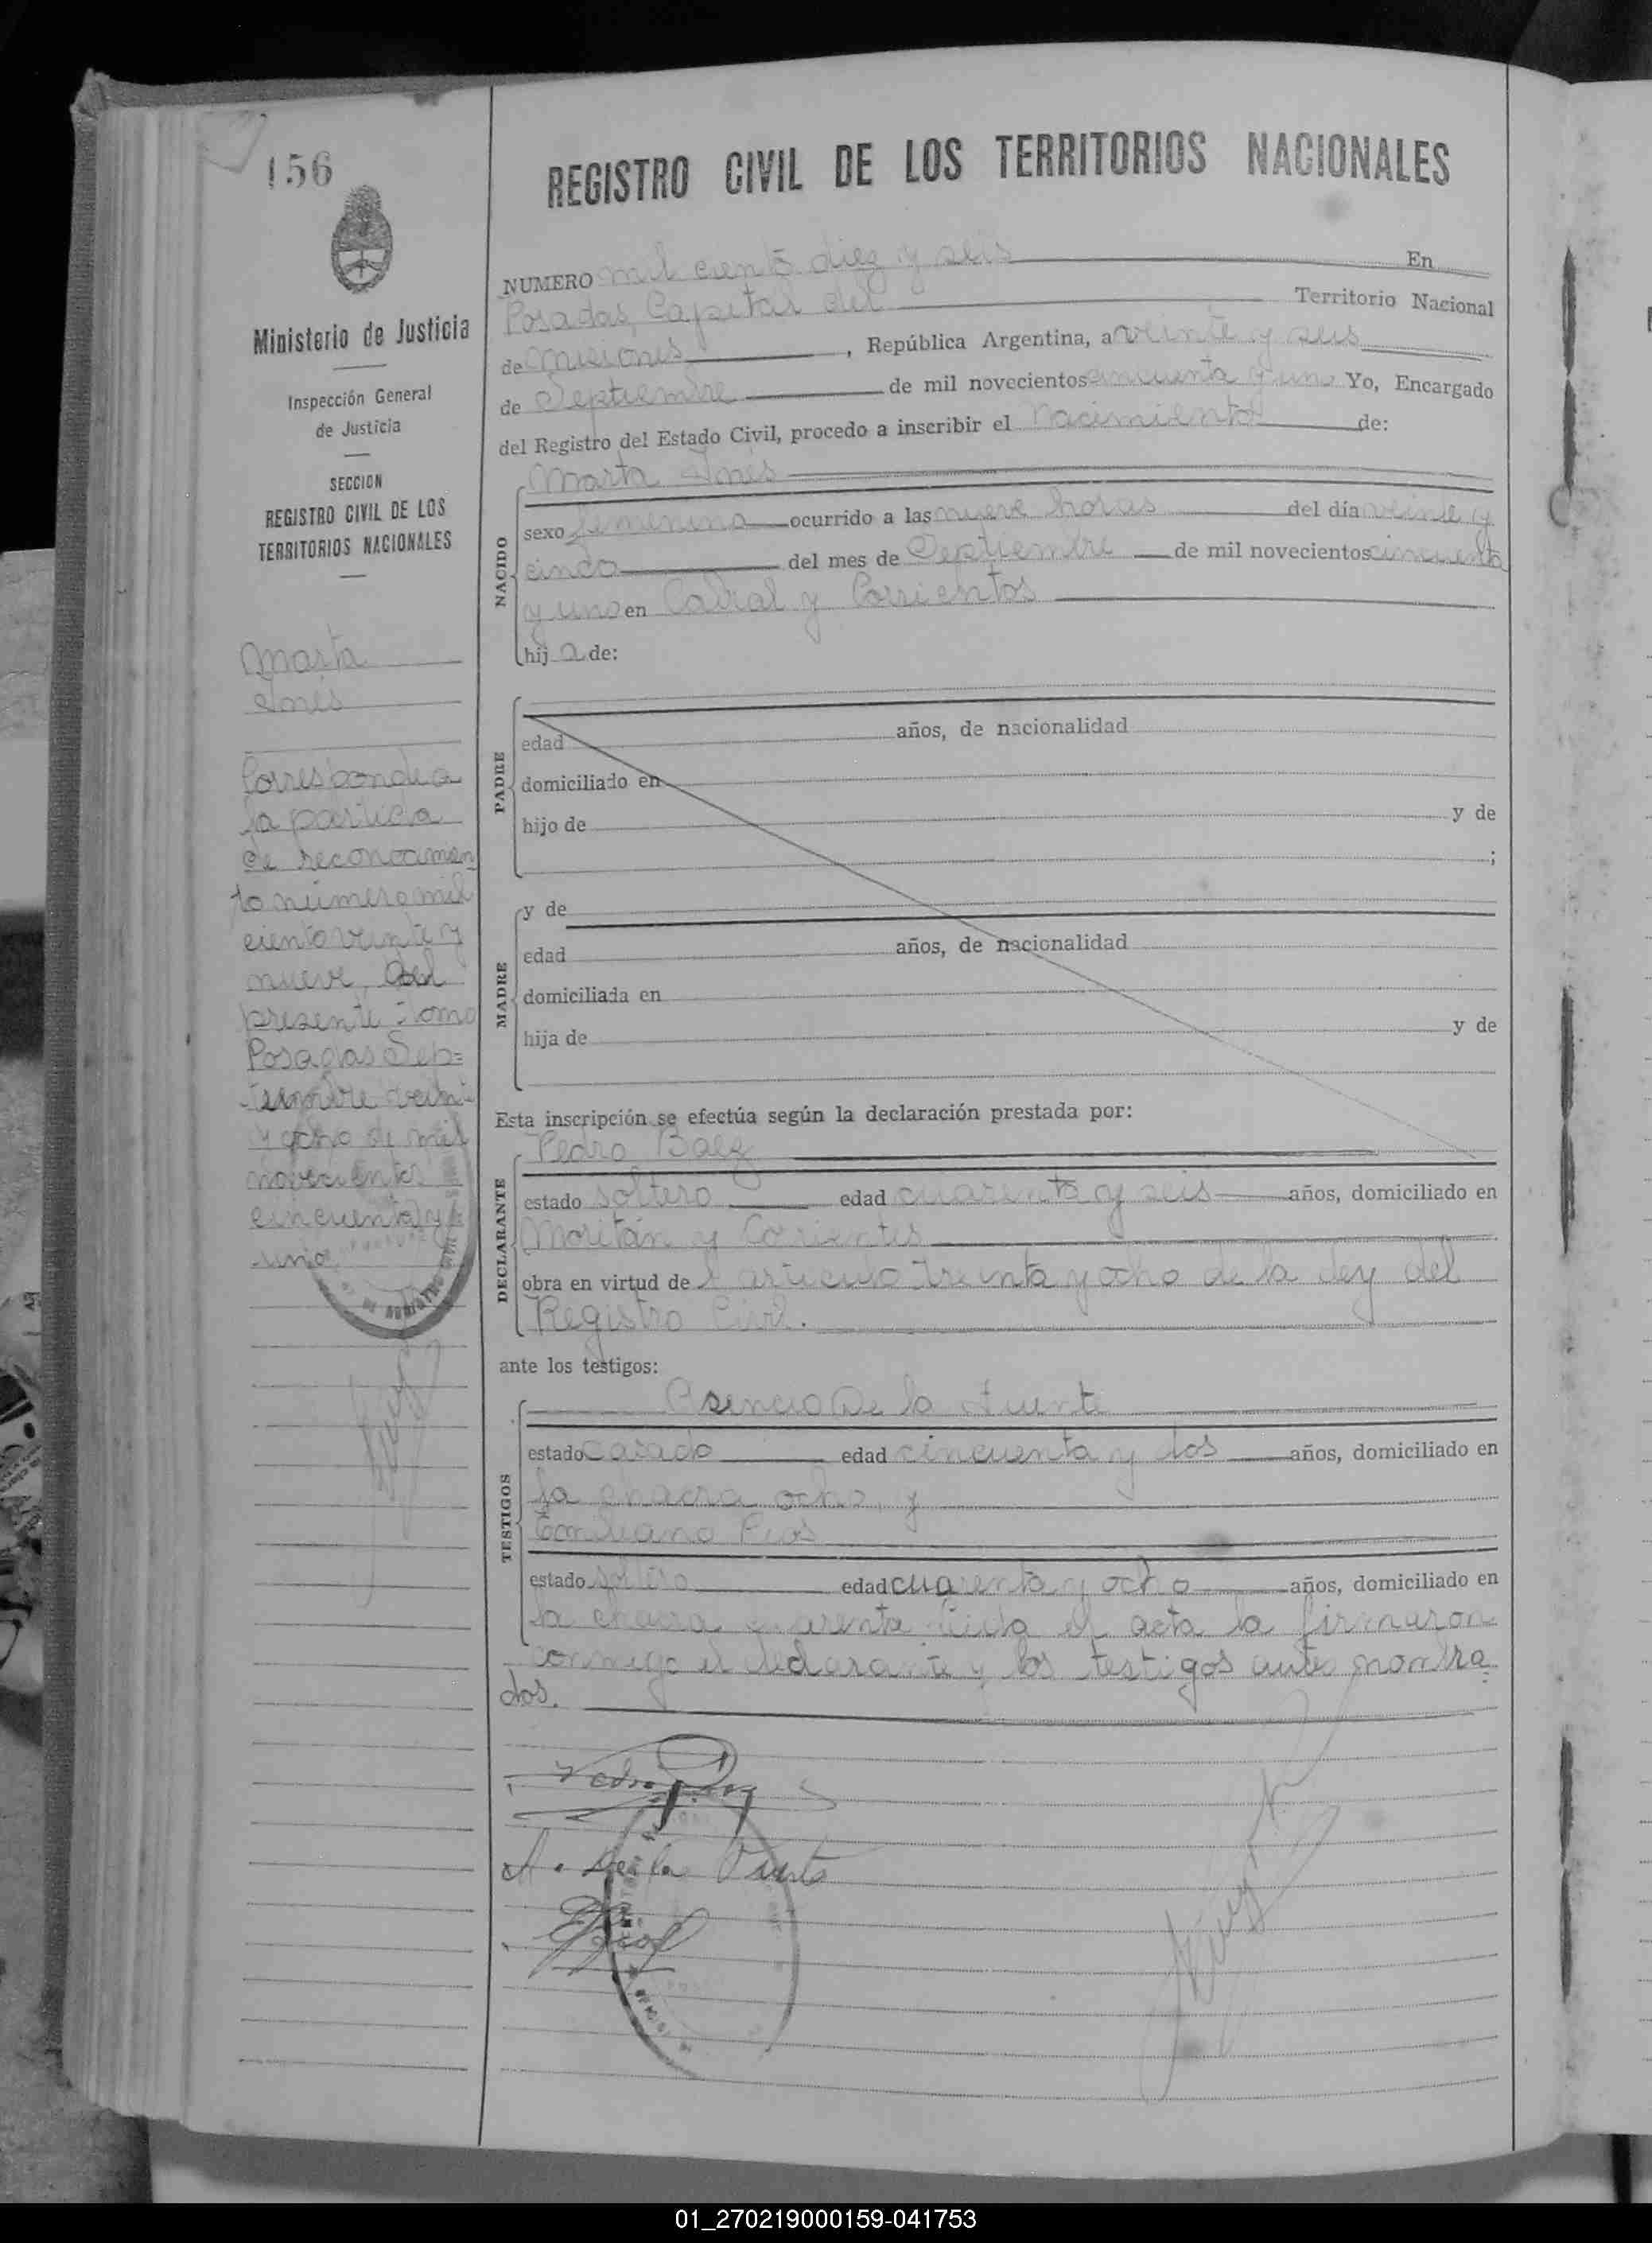 156
Ministerio de Justicia
Inspección General
de Justicia
SECCION
REGISTRO CIVIL DE LOS
TERRITORIOS NACIONALES
Marta
Inés
Corresponde a
la partida
de reconocimien
to número mil
ciento veinte y
nueve del
presente tomo
Posadas Sep=
tiembre veinte
y ocho de mil
novecientos
cincuenta y
uno
REGISTRO CIVIL DE LOS TERRITORIOS NACIONALES
NUMERO mil ciento diez y seis En
Posadas, Capital del Territorio Nacional
de Misiones, República Argentina, a veinte y seis
de Septiembre de mil novecientos cincuenta y uno Yo, Encargado
del Registro del Estado Civil, procedo a inscribir el Nacimiento de:
Marta Inés
NACIDO
sexo femenino ocurrido a las nueve horas del día veinte y
cinco del mes de Septiembre de mil novecientos cincuenta
y uno en Cabral y Corrientes
hija de:
PADRE
edad años, de nacionalidad
domiciliado en
hijo de y de
;
MADRE
y de
edad años, de nacionalidad
domiciliada en
hija de y de
Esta inscripción se efectúa según la declaración prestada por:
DECLARANTE
Pedro Baez
estado soltero edad cuarenta y seis años, domiciliado en
Moritán y Corrientes
obra en virtud del articulo treinta y ocho de la ley del
Registro Civil.
ante los testigos:
TESTIGOS
Asencio De la Fuente
estado casado edad cincuenta y dos años, domiciliado en
la chacra ocho, y
Emiliano Rios
estado soltero edad cuarenta y ocho años, domiciliado en
la chacra cuarenta leida el acta la firmaron
conmigo el declarante y los testigos ante nombra
dos.
Pedro Baez
A. De la Fuente
E Rios
01_270219000159-041753